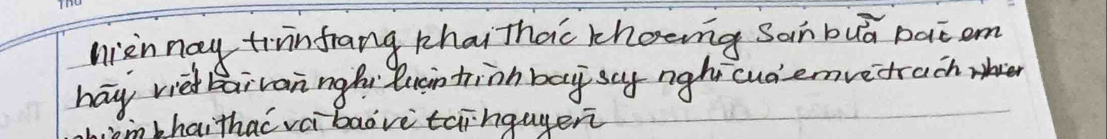 hiện nay tình trạng khai thác khoáng sản bừa bãi em
hãy viết bài văn nghị luận trình bày suy nghĩ của em về trách nhiệm
khai thác và bảo vệ tài nguyên